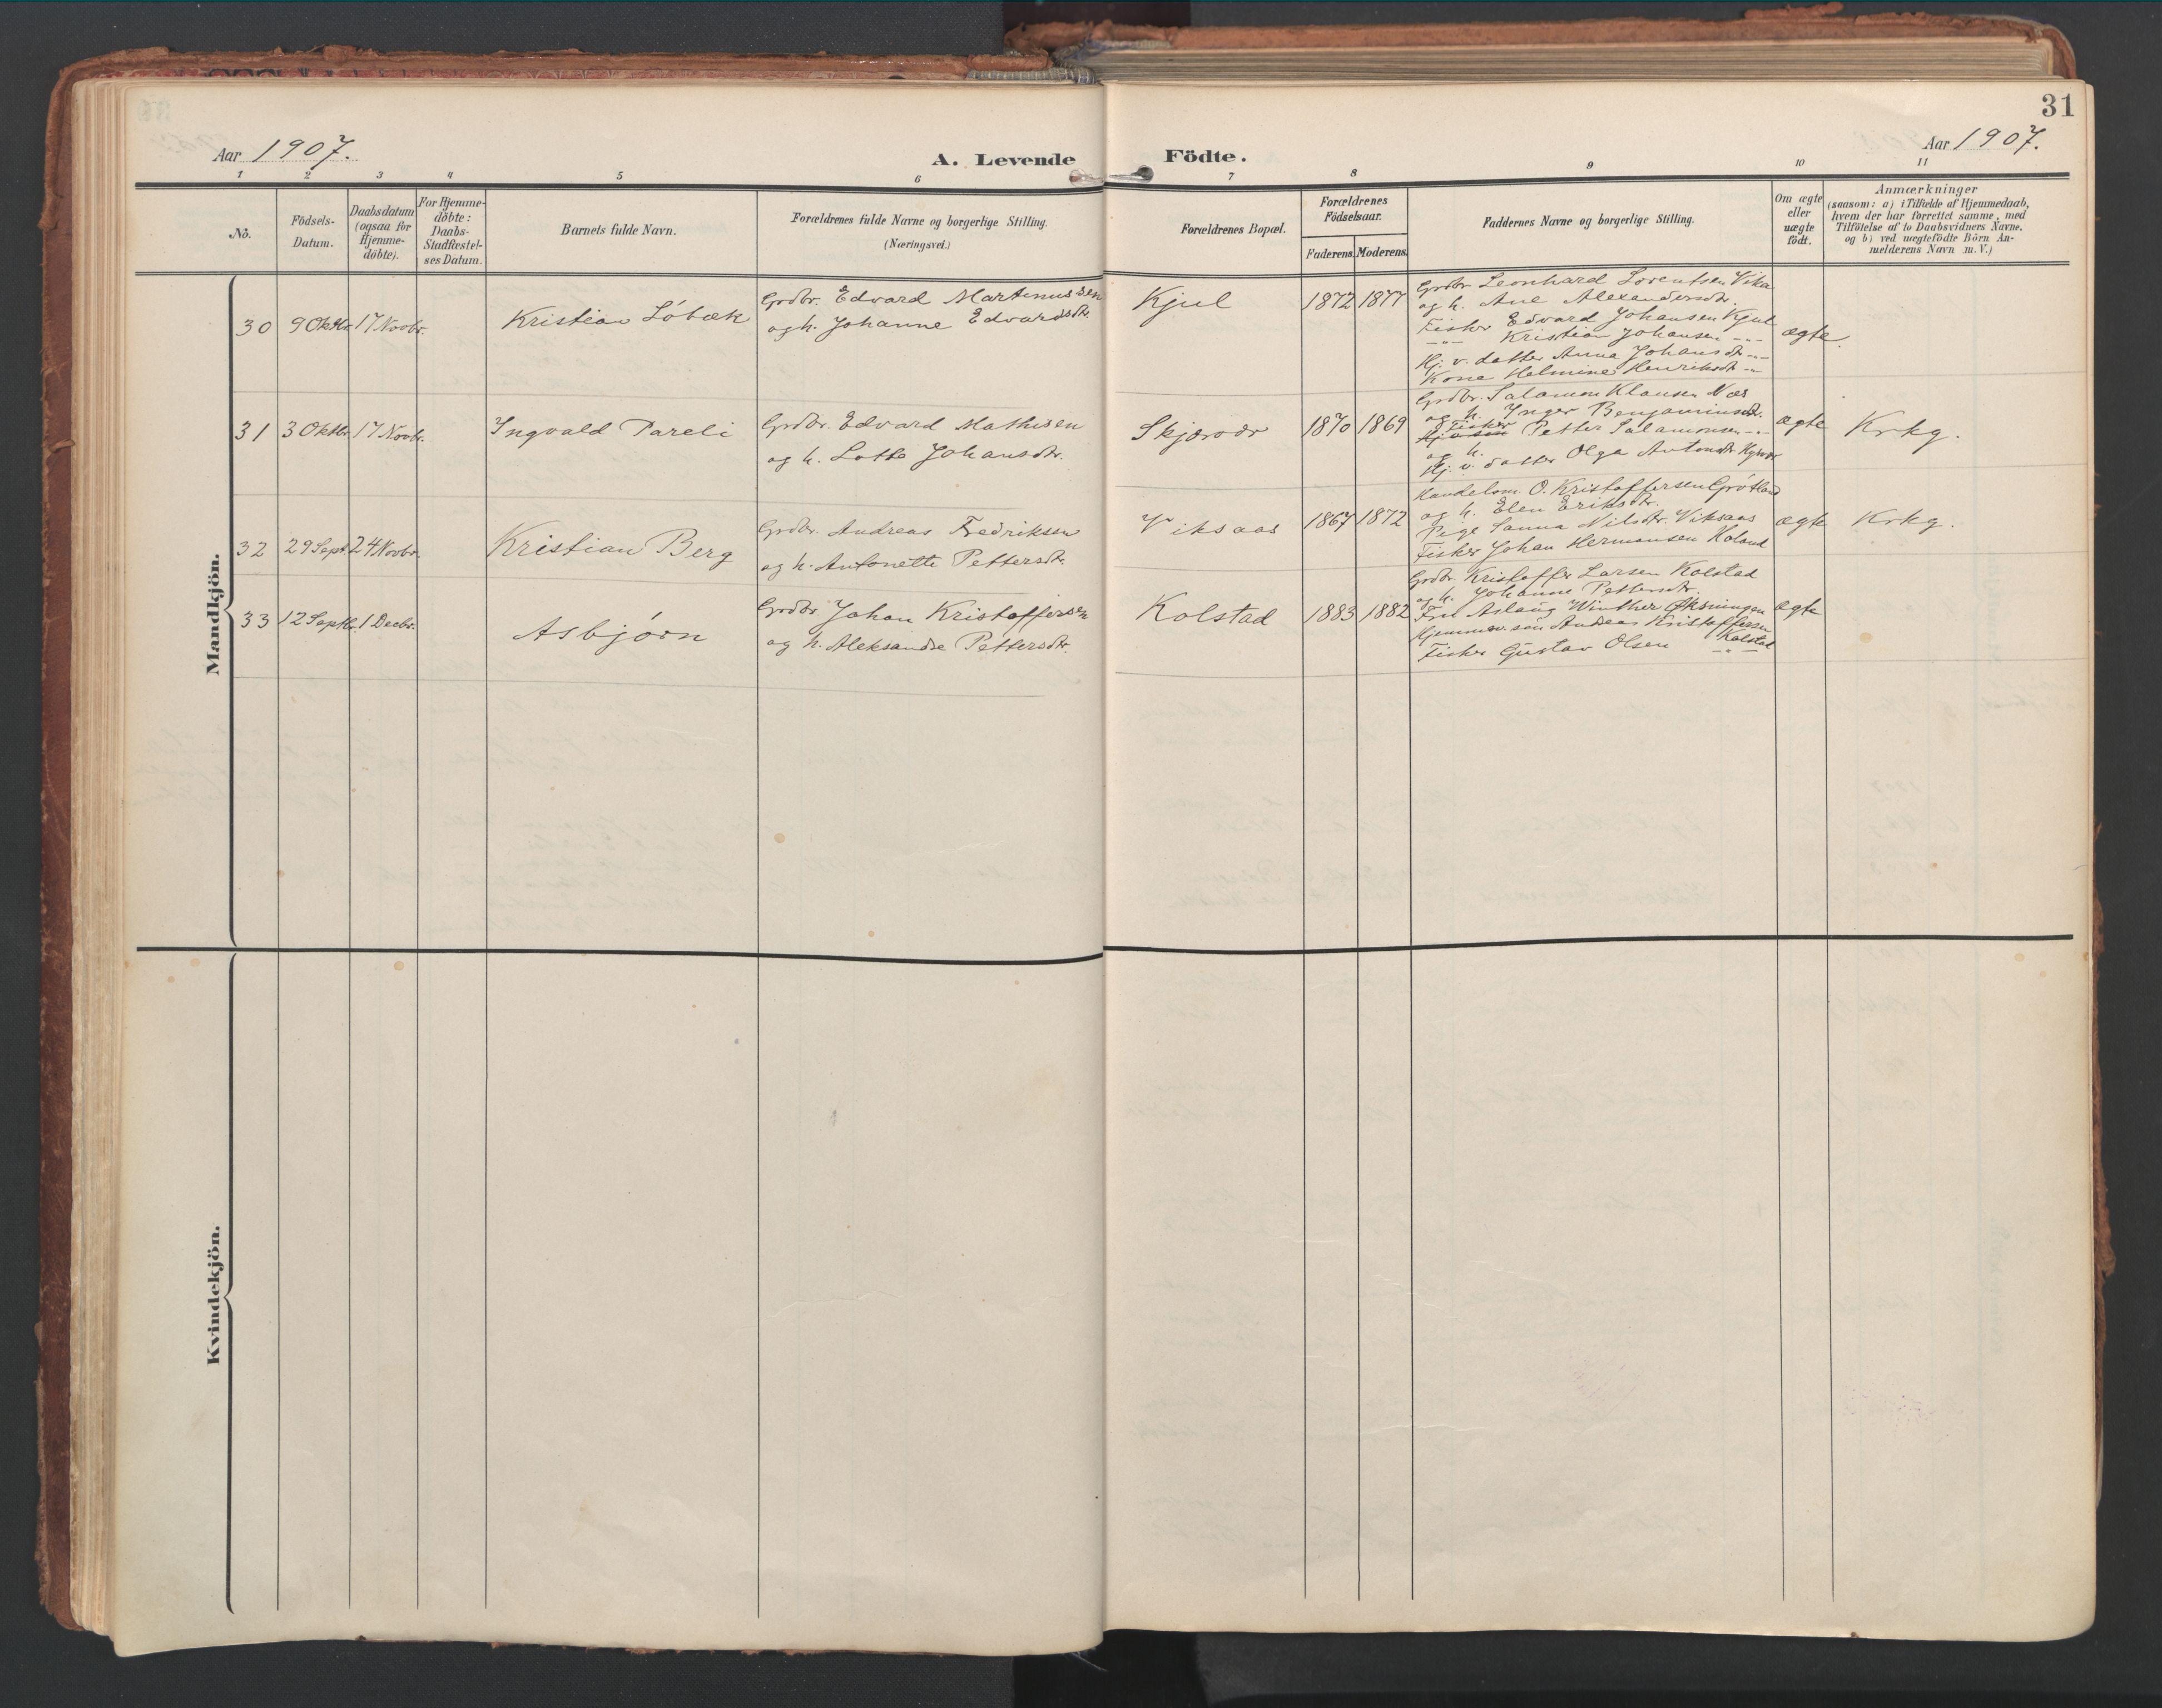 31
Aar 1907.
A. Levende Födte.
Aar 1907.
1 2 3 4 5 6 7 8 9 10 11
Nö.
Födsels-
Datum.
Daabsdatum
(ogsaa for
Hjemme-
döbte).
For Hjemme-
döbte:
Daabs-
Stadfæstel-
ses Datum.
Barnets fulde Navn.
Forældrenes fulde Navne og borgerlige Stilling.
(Næringsvei.)
Forældrenes Bopæl.
Forældrenes
Födselsaar.
Faderens. Moderens.
Faddernes Navne og borgerlige Stilling.
Om ægte
eller
uægte
födt.
Anmærkninger
(saasom: a) i Tilfælde af Hjemmedaab,
hvem der har forrettet samme, med
Tilföielse af to Daabsvidners Navne.
og b) ved uægtefödte Börn An-
melderens Navn m. V.)
Mandkjön.
30 9 Oktbr. 17 Novbr. Kristian Löbæk
Grdbr. Edvard Martinussen
og h. Johanne Edvardsdtr.
Kjul 1872 1877
Grdbr. Leonhard Lorentsen Vika
og h. Ane Alexandersdtr.
Fisker Edvard Johansen Kjul
-"- Kristian Johansen -"-
Hj. v. datter Anna Johansdtr. -"-
Kone Helmine Henriksdtr. -"-
ægte.
31 3 Oktbr. 17 Novbr. Ingvald Pareli
Grdbr. Edvard Mathisen
og h. Lotte Johansdtr.
Skjærvær 1870 1869
Grdbr. Salamon Klausen Næs
og h. Inger Benjaminsdtr.
Fisker Petter Salamonsen -"-
og h.
Hj. v. datter Olga Antonsdtr.
ægte Krkg.
32 29 Sept. 24 Novbr. Kristian Berg
Grdbr. Andreas Fredriksen
og h. Antonette Pettersdtr.
Viksaas 1867 1872
Handelsm. O. Kristoffersen Grötland
og h. Elen Eriksdtr.
Pige Sanna Nilsdtr. Viksaas
Fisker Johan Hermansen Holand
ægte Krkg.
33 12 Septbr. 1 Decbr. Asbjörn
Grdbr. Johan Kristoffersen
og h. Aleksandre Pettersdtr.
Kolstad 1883 1882
Grdbr. Kristoffer Larsen Kolstad
og h. Johanne Pettersdtr.
Fru Aslaug Winther Öksningen
Hjemmev. sön Andreas Kristoffersen
Kolstad
Fisker Gustav Olsen -"-
ægte
Kvindekjön.